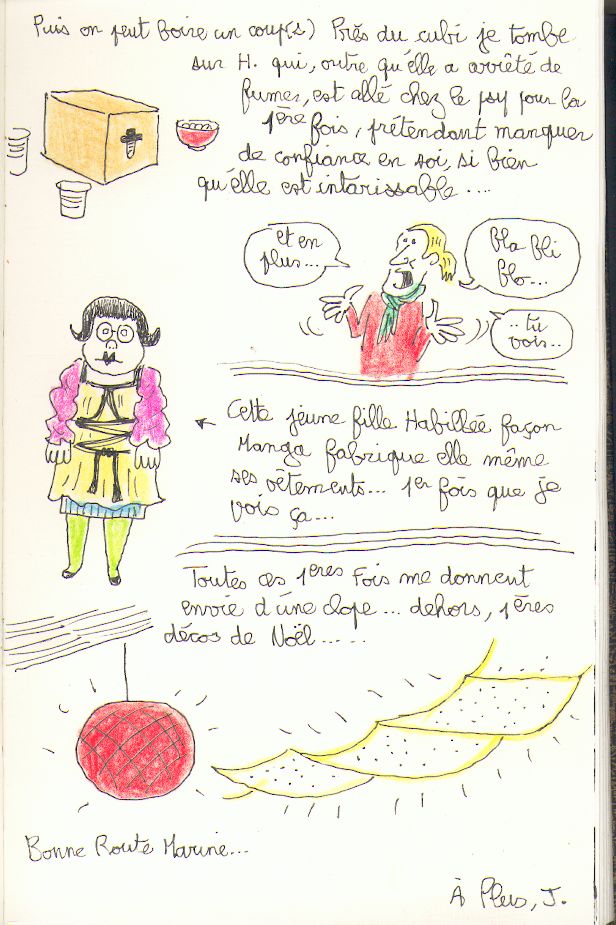 Puis on peut boire un coup(s) Près du cubi je tombe
sur H. qui, outre qu'elle a arrêté de
fumer, est allé chez le psy pour la
1ère fois, prétendant manquer
de confiance en soi, si bien
qu'elle est intarissable....
et en
plus...
Bla Bli
Blo...
..tu
vois..
Cette jeune fille Habillée façon
Manga fabrique elle même
ses vêtements... 1er fois que je
vois ça...
Toutes ces 1ères Fois me donnent
envie d'une clope... dehors, 1ères
décos de Noël.....
Bonne Route Marine...
À Plus, J.